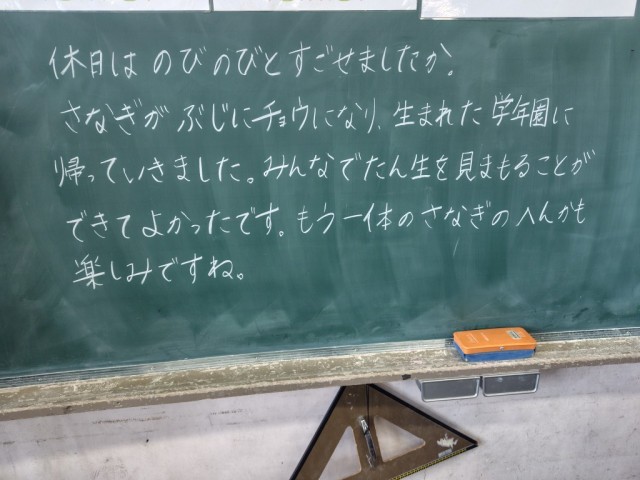 休日は のびのびとすごせましたか。
さなぎが ぶじにチョウになり、生まれた 学年園に
帰っていきました。みんなでたん生を見まもることが
できてよかったです。もう一体のさなぎのへんかも
楽しみですね。